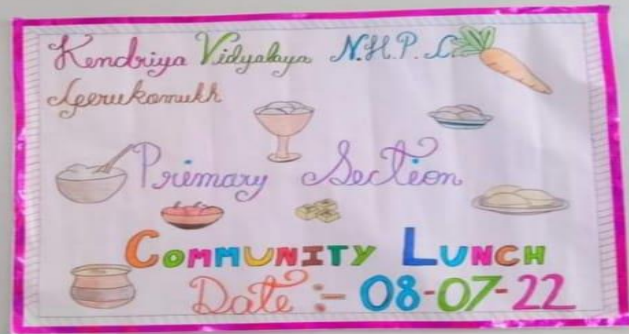 Kendriya Vidyalaya N.H.P.C.
Gerukamukh
Primary Section
COMMUNITY LUNCH
Date :- 08-07-22